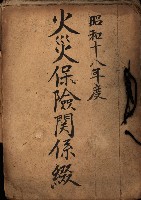 昭和十八年度
火災保險関係綴